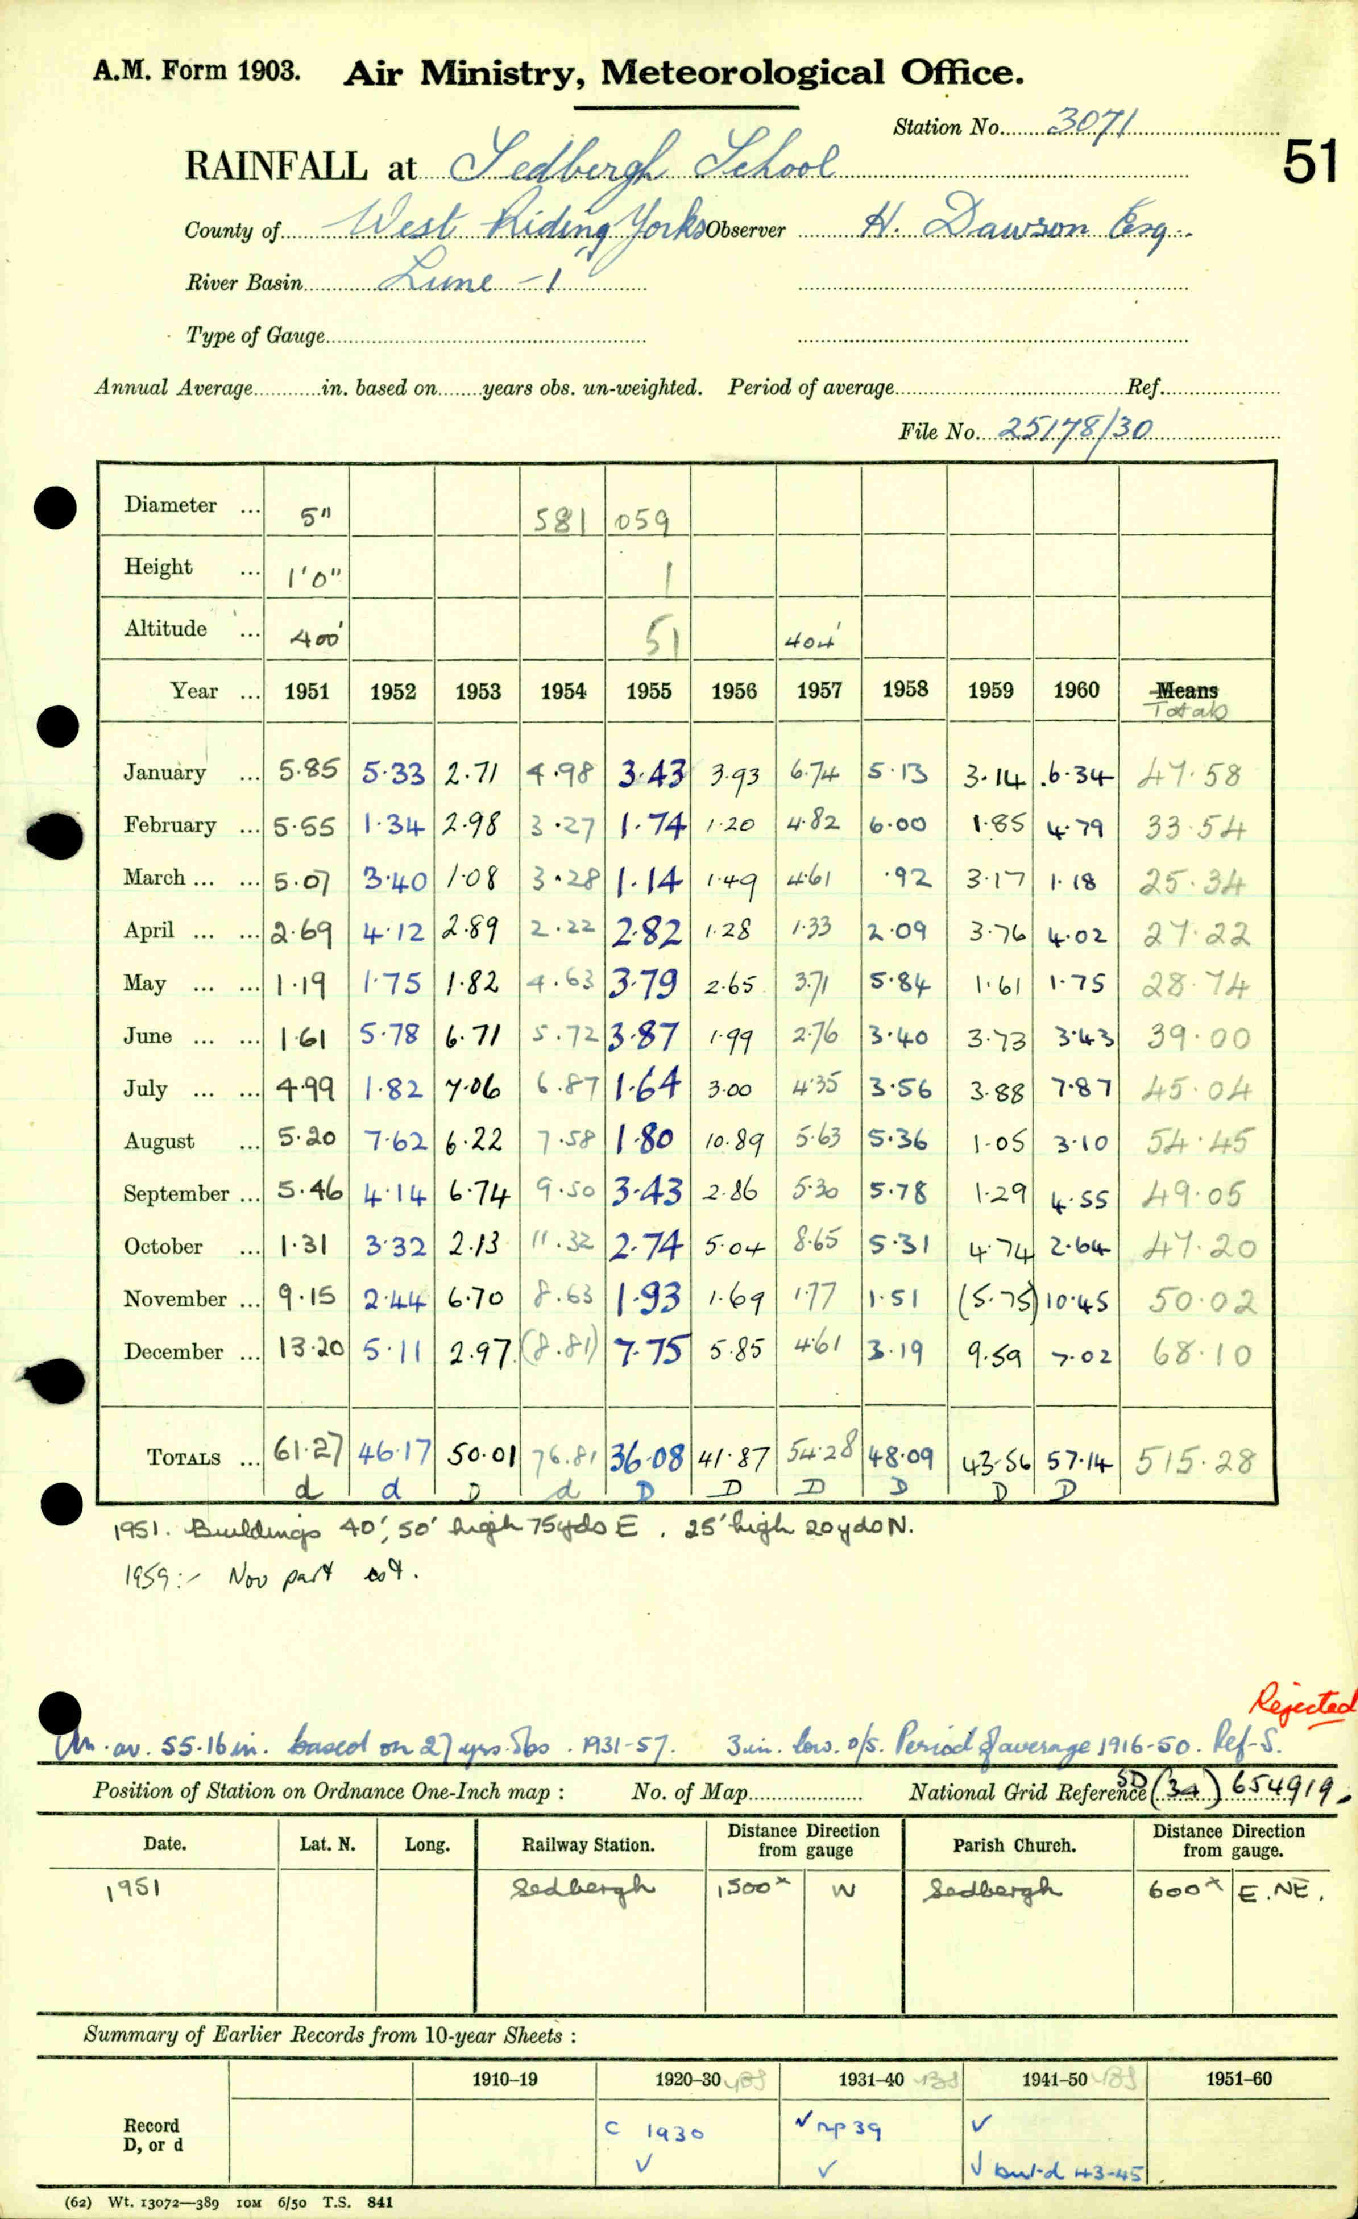 A.M. Form 1903. Air Ministry, Meteorological Office.
Station No. 3071
RAINFALL at Sedbergh School
51
County of West Riding Yorks Observer H. Dawson Esq.
River Basin Lune - 1
Type of Gauge
Annual Average in. based on years obs. un-weighted. Period of average Ref.
File No. 25178/30
Diameter ... 5" 581 059
Height ... 1'0" 1
Altitude ... 400' 51 404'
Year ... 1951 1952 1953 1954 1955 1956 1957 1958 1959 1960 Means
Totals
January ... 5.85 5.33 2.71 4.98 3.43 3.93 6.74 5.13 3.14 6.34 47.58
February ... 5.55 1.34 2.98 3.27 1.74 1.20 4.82 6.00 1.85 4.79 33.54
March ... ... 5.07 3.40 1.08 3.28 1.14 1.49 4.61 .92 3.17 1.18 25.34
April ... ... 2.69 4.12 2.89 2.22 2.82 1.28 1.33 2.09 3.76 4.02 27.22
May ... ... 1.19 1.75 1.82 4.63 3.79 2.65 3.71 5.84 1.61 1.75 28.74
June ... ... 1.61 5.78 6.71 5.72 3.87 1.99 2.76 3.40 3.73 3.43 39.00
July ... ... 4.99 1.82 7.06 6.87 1.64 3.00 4.35 3.56 3.88 7.87 45.04
August ... 5.20 7.62 6.22 7.58 1.80 10.89 5.63 5.36 1.05 3.10 54.45
September ... 5.46 4.14 6.74 9.50 3.43 2.86 5.30 5.78 1.29 4.55 49.05
October ... 1.31 3.32 2.13 11.32 2.74 5.04 8.65 5.31 4.74 2.64 47.20
November ... 9.15 2.44 6.70 8.63 1.93 1.69 1.77 1.51 (5.75) 10.45 50.02
December ... 13.20 5.11 2.97 (8.81) 7.75 5.85 4.61 3.19 9.59 7.02 68.10
TOTALS ... 61.27 46.17 50.01 76.81 36.08 41.87 54.28 48.09 43.56 57.14 515.28
d d D d D D D D D D
1951. Buildings 40', 50' high 75yds E. 25' high 20yds N.
1959:- Nov part est.
Rejected
An. av. 55.16in. based on 27 yrs. obs. 1931-57. 3in. low. o/s. Period of average 1916-50. Ref-S.
Position of Station on Ordnance One-Inch map : No. of Map National Grid Reference SD (34) 654919.
Date. Lat. N. Long. Railway Station. Distance Direction from gauge Parish Church. Distance Direction from gauge.
1951 Sedbergh 1,500x W Sedbergh 600x E.NE.
Summary of Earlier Records from 10-year Sheets :
1910-19 1920-30 1931-40 1941-50 1951-60
Record D, or d C 1930 ✓ ✓ np 39 ✓ ✓
✓ but d 43-45
(62) Wt. 13072—389 10M 6/50 T.S. 841